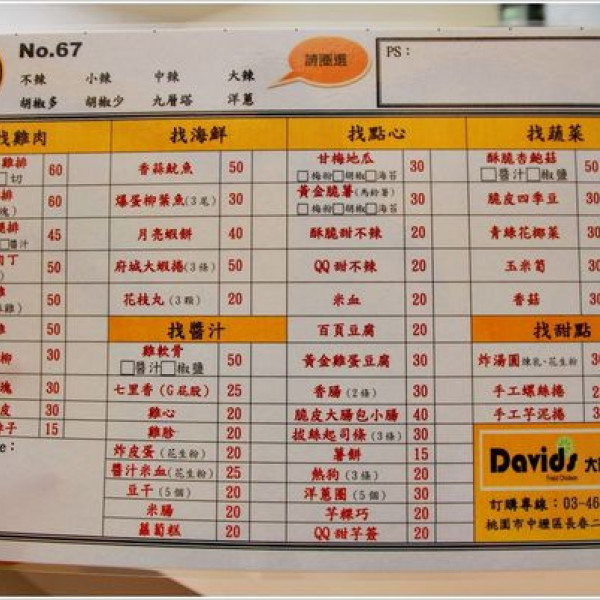 No.67
不辣 小辣 中辣 大辣
胡椒多 胡椒少 九層塔 洋蔥
請圈選
PS：
找雞肉
雞排 60
切
排 50
塊)
排 45
醬汁
丁 50
雞 50
雞)
雞 50
柳 30
塊 30
皮 30
子 15
e：
找海鮮
香蒜魷魚 50
爆蛋柳葉魚(3尾) 30
月亮蝦餅 40
府城大蝦捲(3條) 50
花枝丸(3顆) 20
找醬汁
雞軟骨 50
醬汁 椒鹽
七里香(G花股) 25
雞心 20
雞胗 20
炸皮蛋(花生粉) 20
醬汁米血(花生粉) 25
豆干(5個) 20
米腸 20
蘿蔔糕 20
找點心
甘梅地瓜 30
梅粉 胡椒 海苔
黃金脆薯(馬鈴薯) 30
梅粉 胡椒 海苔
酥脆甜不辣 20
QQ甜不辣 20
米血 20
百頁豆腐 20
黃金雞蛋豆腐 30
香腸(2條) 30
脆皮大腸包小腸 40
拔絲起司條(3條) 30
薯餅 15
熱狗(3條) 20
洋蔥圈(5個) 30
芋粿巧 20
QQ甜芋簽 20
找蔬菜
酥脆杏鮑菇 50
醬汁 椒鹽
脆皮四季豆 30
青綠花椰菜 30
玉米筍 30
香菇 30
找甜點
炸湯圓 煉乳、花生粉 30
手工螺絲捲
手工芋泥捲
David's 大
Fried Chicken
訂購專線：03-46
桃園市中壢區長春二